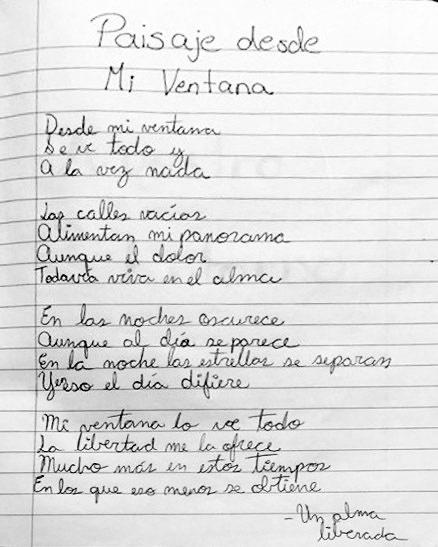 Paisaje desde
Mi Ventana
Desde mi ventana
Se ve todo y
A la vez nada
Las calles vacías
Alimentan mi panorama
Aunque el dolor
Todavía viva en el alma
En las noches oscurece
Aunque al día se parece
En la noche las estrellas se separan
Y eso el día difiere
Mi ventana lo ve todo
La libertad me la ofrece
Mucho más en estos tiempos
En los que eso menos se obtiene
-Un alma
liberada